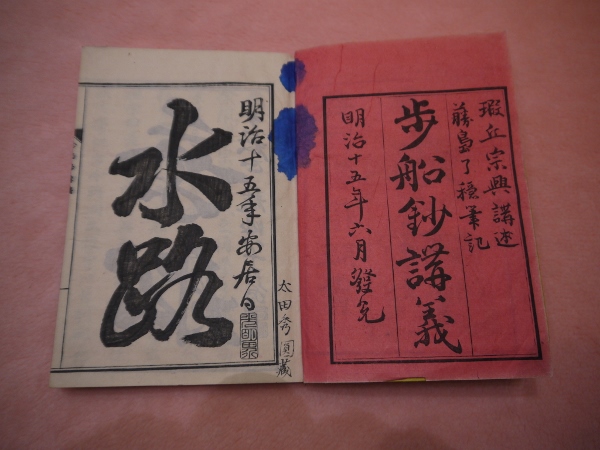 瑕丘宗興講述
藤島了穏筆記
歩船鈔講義
明治十五年六月發兌
水路
明治十五年安居日
太田秀圓藏